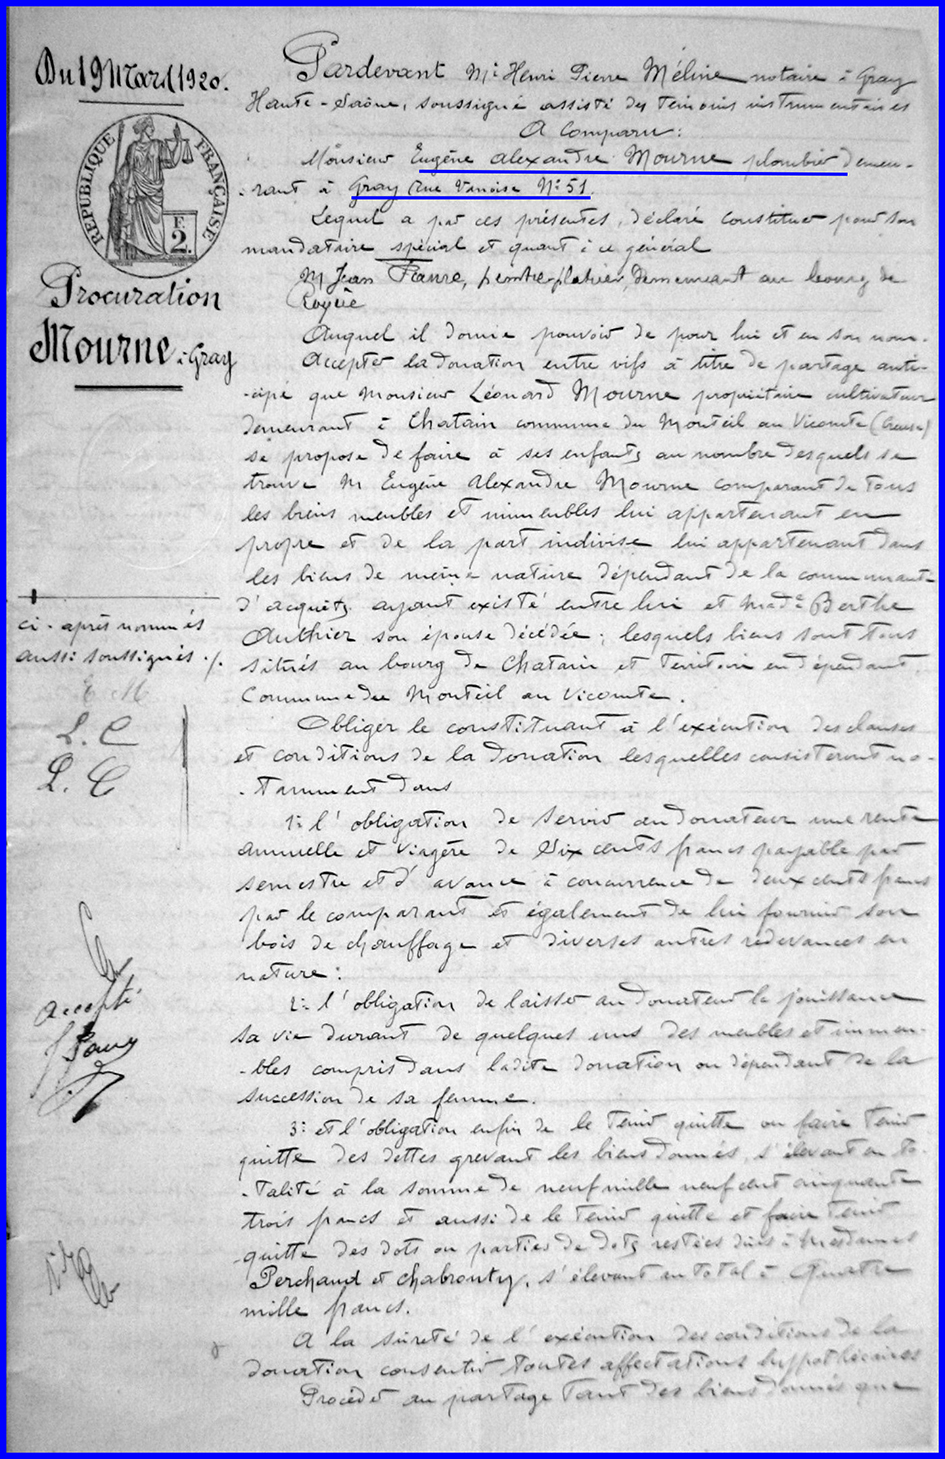 Du 19 Mars 1920.
RÉPUBLIQUE FRANÇAISE
2 F
Procuration
Mourne à Gray
Pardevant Me Henri Pierre Méline notaire à Gray
Haute-Saône, soussigné assisté des témoins instrumentaires
A Comparu:
Monsieur Eugène Alexandre Mourne plombier demeu-
-rant à Gray rue Vanoise No 51.
Lequel a par ces présentes, déclaré constituer pour son
mandataire spécial et quant à ce général
M Jean Faure, peintre-platrier, demeurant au bourg de
Auquel il donne pouvoir de pour lui et en son nom.
Accepter la donation entre vifs à titre de partage anti-
-cipé que Monsieur Léonard Mourne propriétaire cultivateur
demeurant à Chatain commune du Monteil au Vicomte (Creuse)
se propose de faire à ses enfants au nombre desquels se
trouve M. Eugène Alexandre Mourne comparant de tous
les biens meubles et immeubles lui appartenant en
propre et de la part indivise lui appartenant dans
les biens de même nature dépendant de la communauté
d'acquêts ayant existé entre lui et Made Berthe
Authier son épouse décédée; lesquels biens sont tous
situés au bourg de Chatain et territoire en dépendant,
Commune du Monteil au Vicomte.
Obliger le constituant à l'exécution des clauses
et conditions de la donation lesquelles consisteront no-
-tamment dans
1o l'obligation de servir au donateur une rente
annuelle et viagère de Six cents francs payable par
semestre et d'avance à concurrence de deux cents francs
par le comparant et également de lui fournir son
bois de chauffage et diverses autres redevances en
nature:
2o l'obligation de laisser au donateur la jouissance
sa vie durant de quelques uns des meubles et immeu-
-bles compris dans ladite donation ou dépendant de la
succession de sa femme.
3o et l'obligation enfin de le tenir quitte ou faire tenir
quitte des dettes grevant les biens donnés, s'élevant en to-
-talité à la somme de neuf mille neuf cent cinquante
trois francs et aussi de le tenir quitte et faire tenir
quitte des dots ou parties de dots restées dues à Mesdames
Perchaud et Chabrouty, s'élevant au total à Quatre
mille francs.
A la sûreté de l'exécution des conditions de la
donation consentir toutes affectations hypothécaires
Procéder au partage tant des biens donnés que
ci-après nommés
aussi soussignés ./.
E M
L. C
L. C
accepté